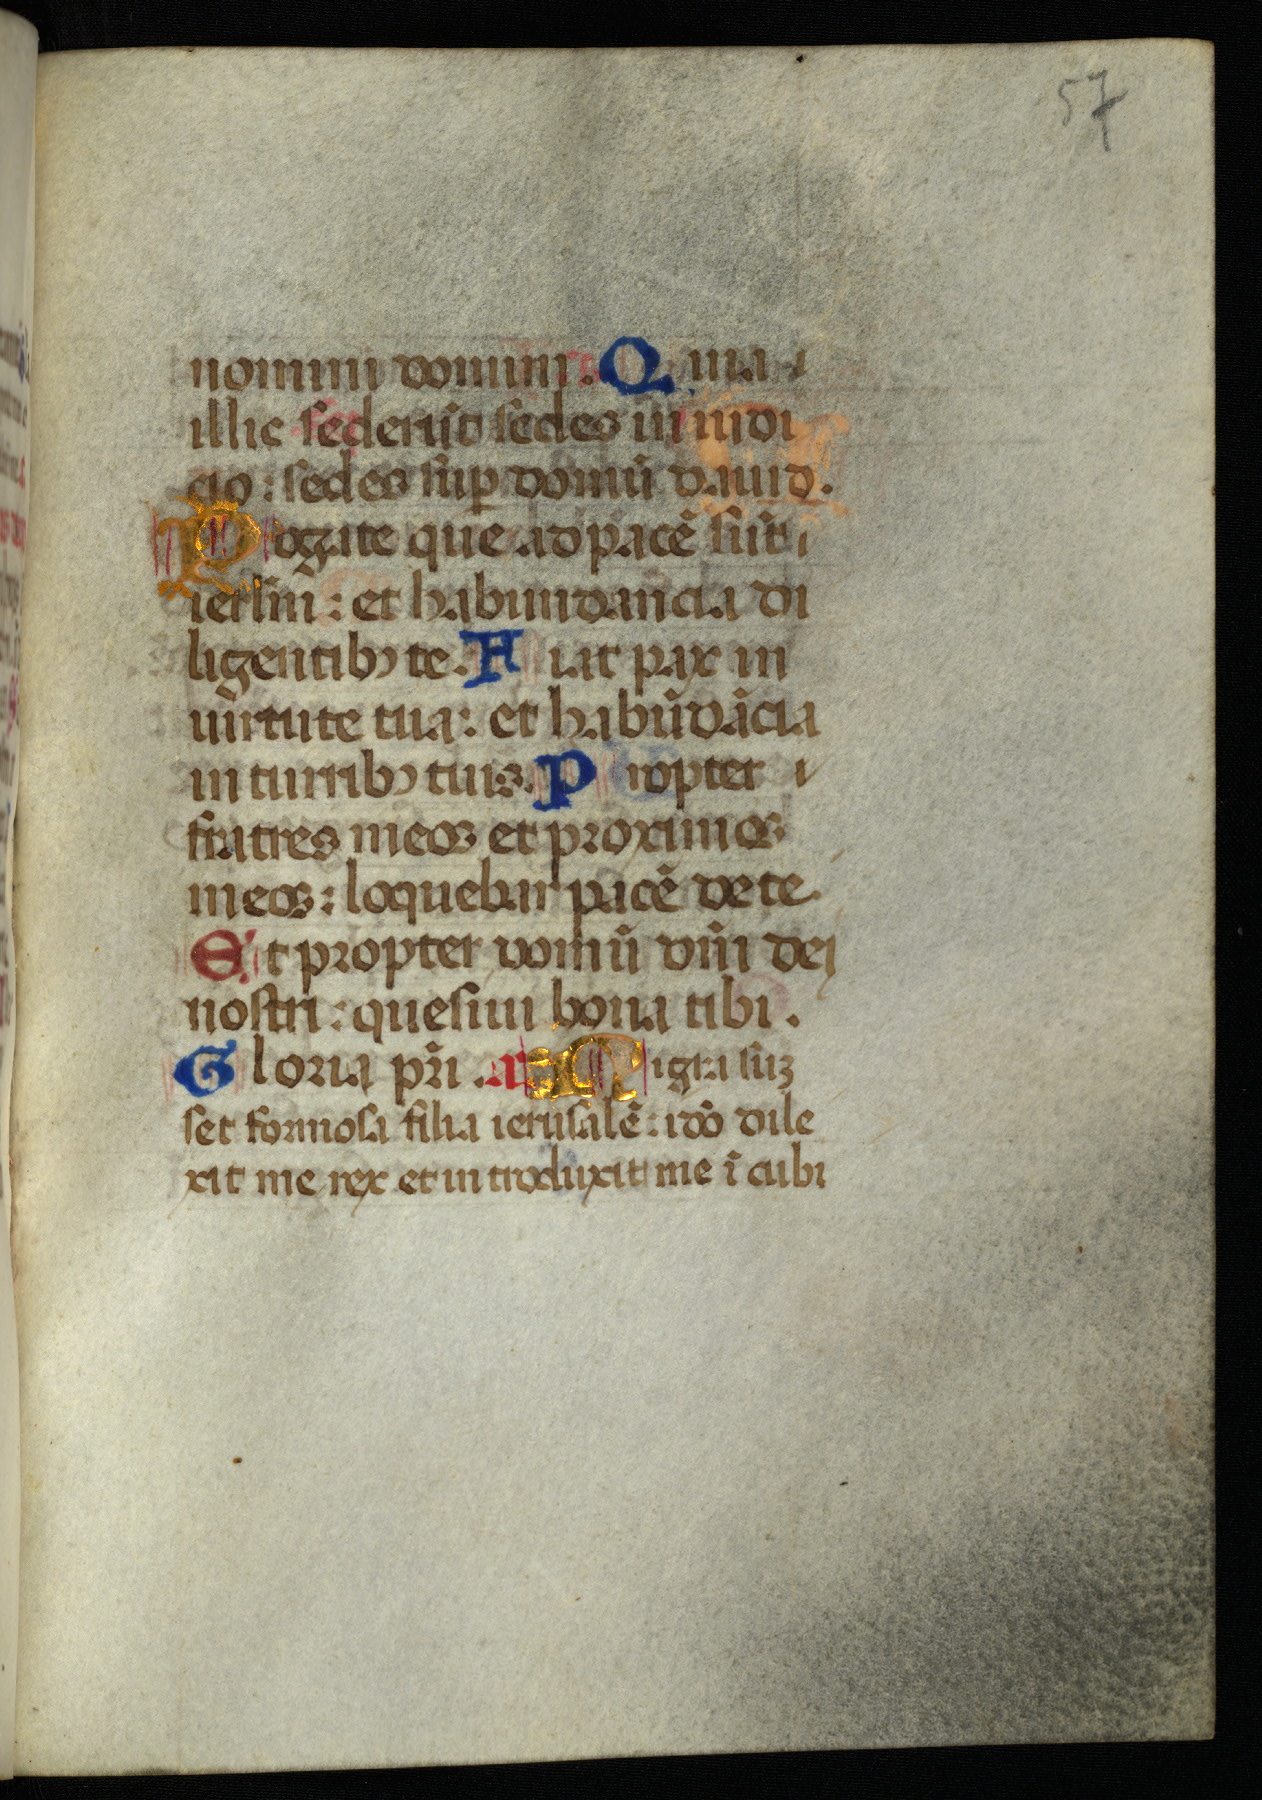 57
nomini domini. Quia
illic sederūt sedes in iudi
cio: sedes sup domū dauid.
Rogate que ad pacē sūt
ierl̄m: et habundancia di
ligentibꝯ te. Fiat pax in
uirtute tua: et habūdācia
in turribꝯ tuis. Propter
fratres meos et proximos
meos: loquebar pacē de te.
Et propter domū dn̄i dei
nostri: quesiui bona tibi.
Gloria pr̄i. a Nigra sūꝫ
set formosa filia ierusalē: idō dile
xit me rex et introduxit me ī cubi